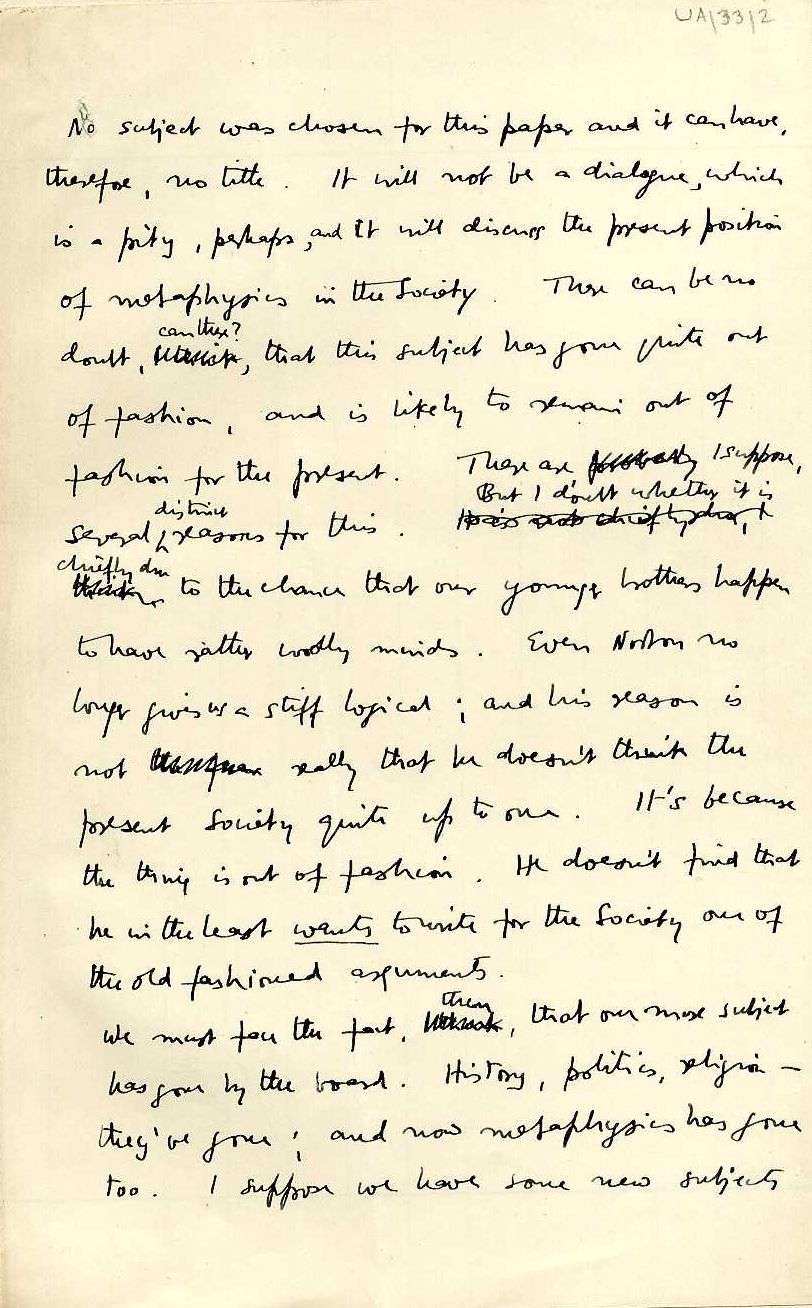 UA/33/2
No subject was chosen for this paper and it can have,
therefore, no title. It will not be a dialogue, which
is a pity, perhaps, and It will discuss the present position
of metaphysics in the Society. There can be no
can there?
doubt, I think, that this subject has gone quite out
of fashion, and is likely to remain out of
fashion for the present. There are probably I suppose,
But I doubt whether it is
several distinct reasons for this. It is not chiefly due, I
chiefly due
think, to the chance that our younger brothers happen
to have rather woolly minds. Even Norton no
longer gives us a stiff logical; and his reason is
not really that he doesn't think the
present Society quite up to one. It's because
the thing is out of fashion. He doesn't find that
he in the least wants to write for the Society one of
the old fashioned arguments.
then
We must face the fact, I think, that one more subject
has gone by the board. History, politics, religion —
they've gone; and now metaphysics has gone
too. I suppose we have some new subjects